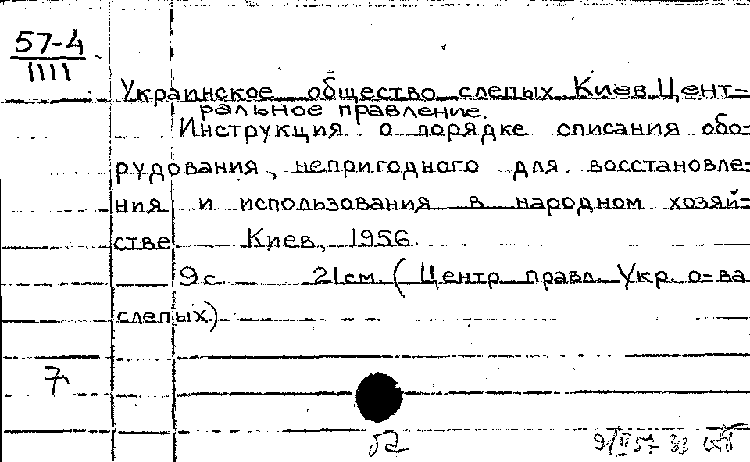 57-4
1111
Украинское общество слепых Киев Цент-
ральное правление.
Инструкция о порядке списания обо-
рудования, непригодного для восстановле-
ния и использования в народном хозяй-
стве Киев, 1956.
9 с 21 см (Центр правл. Укр. о-ва
слепых)
7